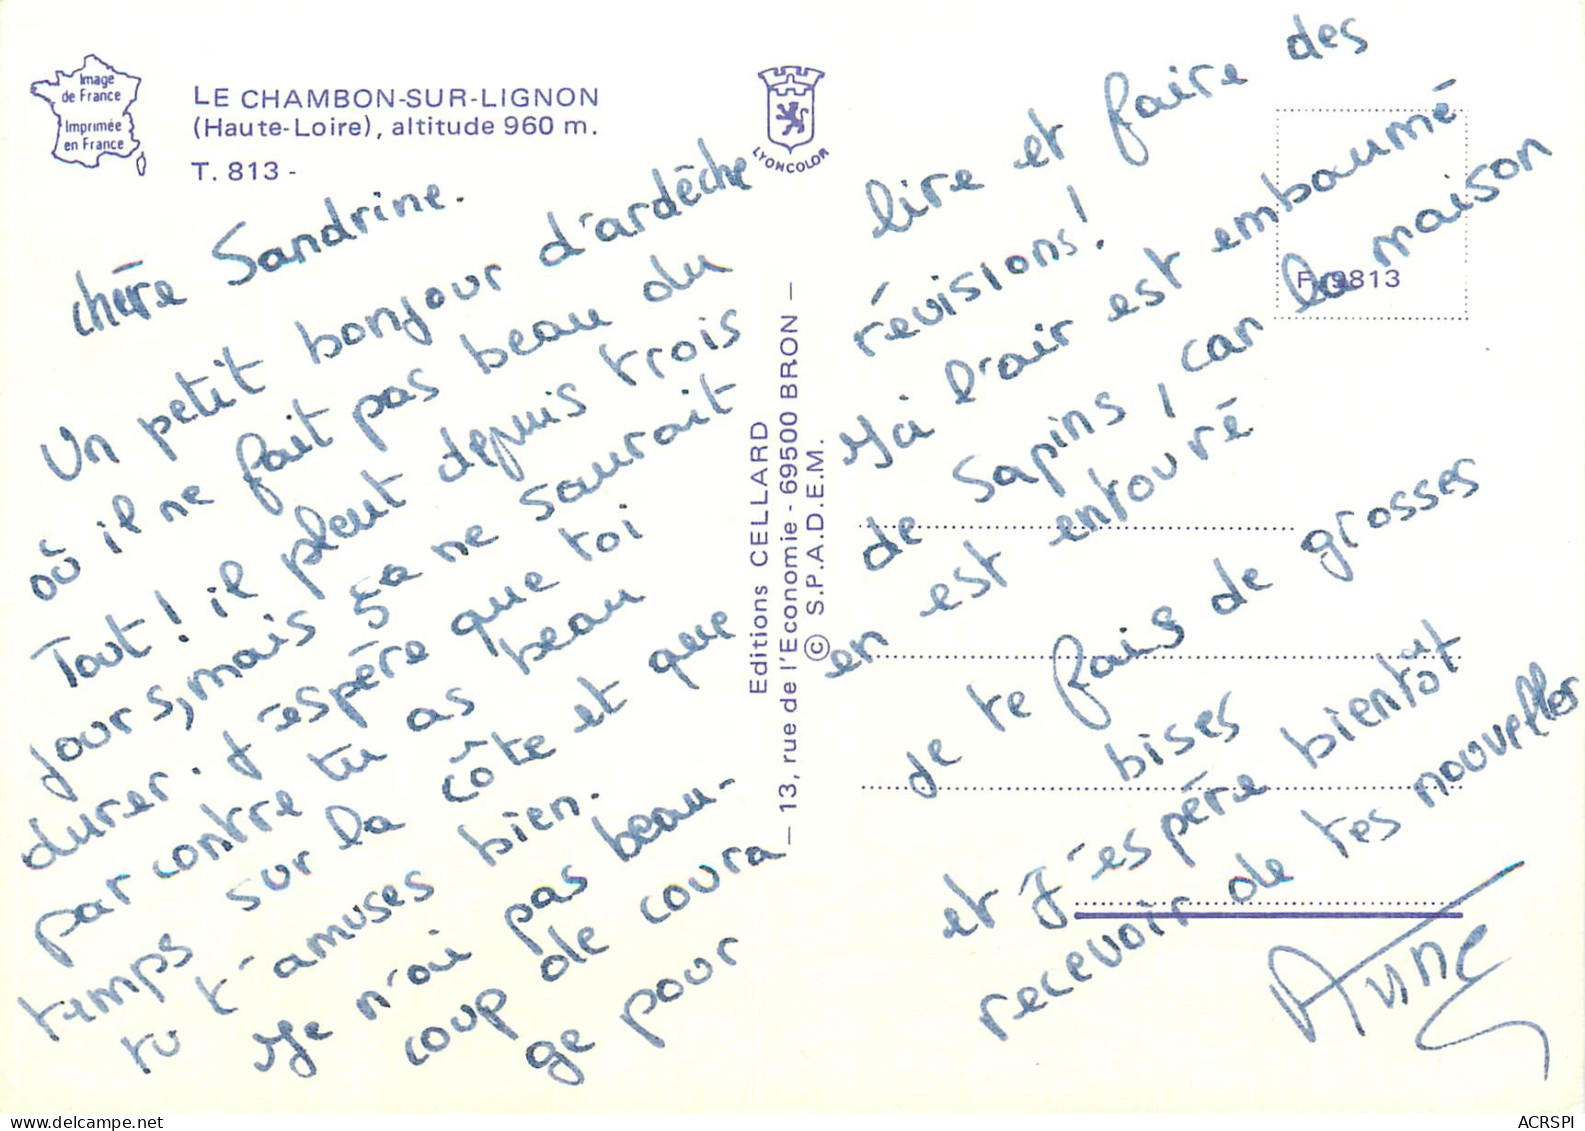 Image
de France
Imprimée
en France
LE CHAMBON-SUR-LIGNON
(Haute-Loire), altitude 960 m.
T. 813 -
LYONCOLOR
chère Sandrine.
Un petit bonjour d'ardèche
où il ne fait pas beau du
Tout! il pleut depuis trois
jours, mais ça ne saurait
durer. J'espère que toi
par contre tu as beau
temps sur la côte et que
tu t'amuses bien.
Je n'ai pas beau-
coup de coura
ge pour
Editions CELLARD
— 13, rue de l'Economie - 69500 BRON —
© S.P.A.D.E.M.
F 9813
lire et faire des
révisions!
Ici l'air est embaumé
de sapins, car la maison
en est entouré
de te fais de grosses
bises
et j'espère bientôt
recevoir de tes nouvelles
Anne
ACRSPI